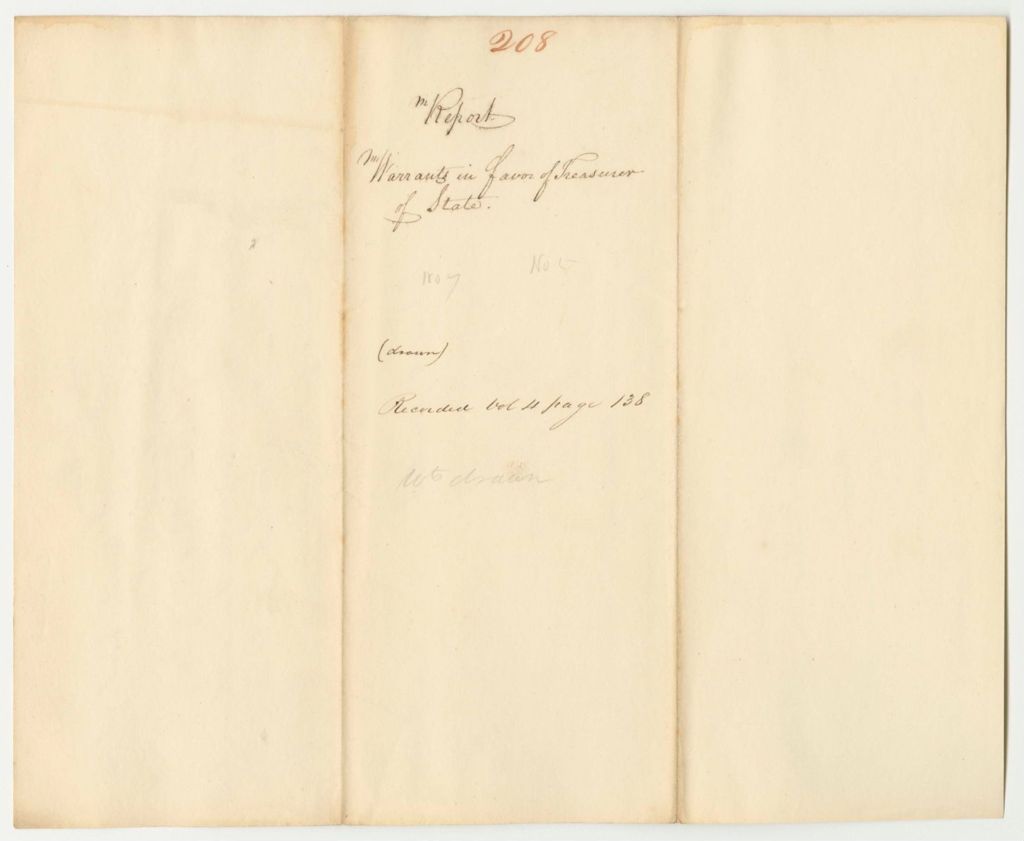 208
Report
Warrants in favor of Treasurer
of State.
No 7 No 5
(drawn)
Recorded Vol 4 page 138
drawn